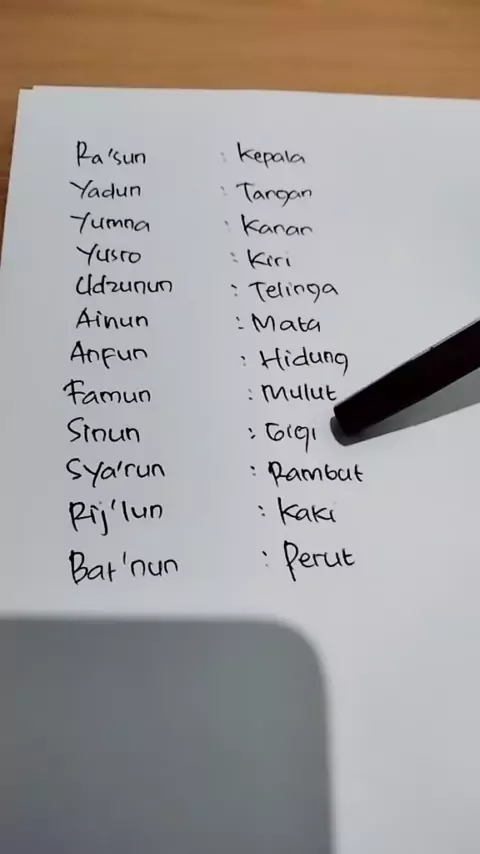 Ra'sun : Kepala
Yadun : Tangan
Yumna : Kanan
Yusro : Kiri
Udzunun : Telinga
Ainun : Mata
Anfun : Hidung
Famun : Mulut
Sinun : Gigi
Sya'run : Rambut
Rij'lun : Kaki
Bat'nun : Perut